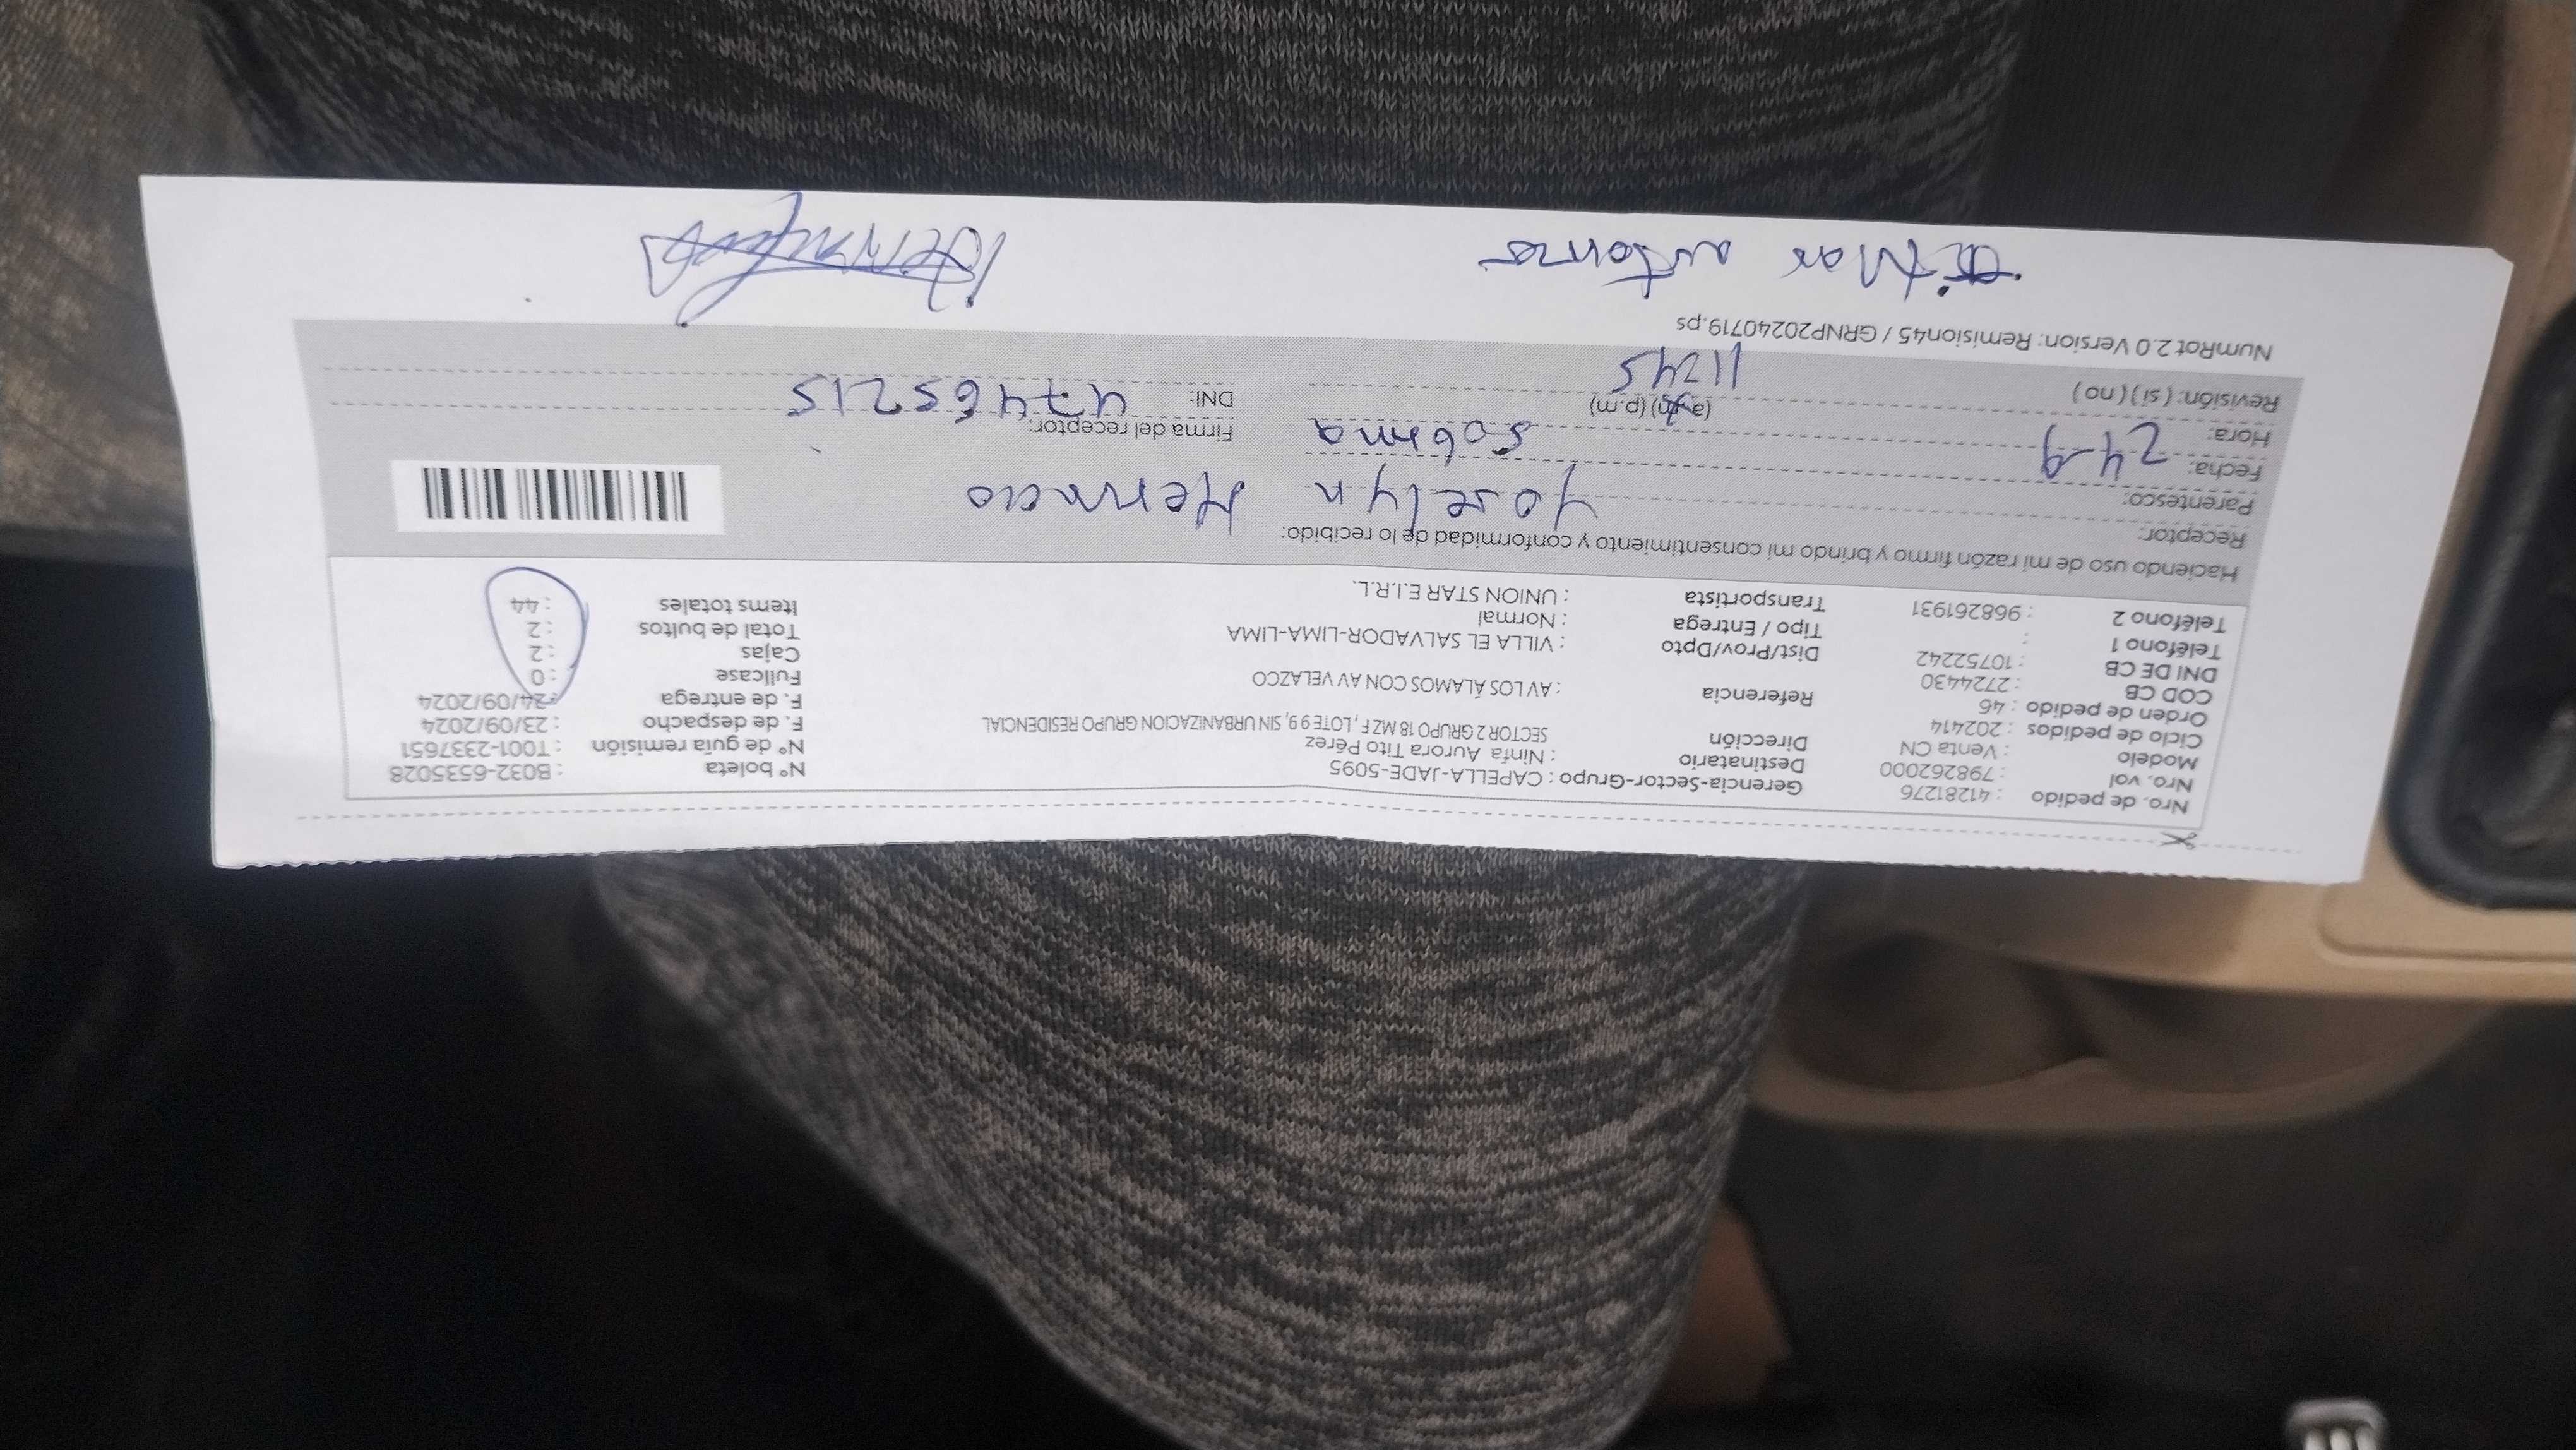 Nro. de pedido : 41281276 Gerencia-Sector-Grupo : CAPELLA-JADE-5095 N° boleta : B032-6535028
Nro. vol : 798262000 Destinatario : Ninfa Aurora Tito Pérez N° de guía remisión : T001-2337651
Modelo : Venta CN Dirección SECTOR 2 GRUPO 18 MZ F , LOTE 9 9, SIN URBANIZACION GRUPO RESIDENCIAL F. de despacho : 23/09/2024
Ciclo de pedidos : 202414 F. de entrega : 24/09/2024
Orden de pedido : 46 Referencia : AV LOS ÁLAMOS CON AV VELAZCO Fullcase : 0
COD CB : 2724430 Cajas : 2
DNI DE CB : 10752242 Dist/Prov/Dpto : VILLA EL SALVADOR-LIMA-LIMA Total de bultos : 2
Teléfono 1 : Tipo / Entrega : Normal Items totales : 44
Teléfono 2 : 968261931 Transportista : UNION STAR E.I.R.L.
Haciendo uso de mi razón firmo y brindo mi conformidad y consentimiento de lo recibido:
Receptor: Yoselyn
Parentesco: sobrina
Fecha: 24-9 Firma del receptor:
Hora: (a.m) (p.m) DNI: 47465215
Revisión: ( si ) ( no ) 11:45
NumRot 2.0 Version: Remision45 / GRNP20240719.ps